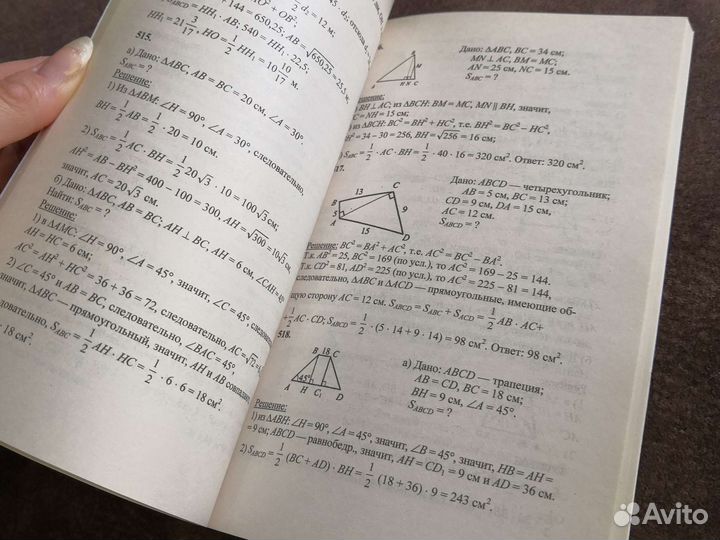 d₂; отсюда d₂
d₂ = 12 м.
AO² + OB²,
= 144 = 650,25, AB = √650,25 = 25,5
S_ABCD = HH₁ · AB; 540 = HH₁ · 22,5,
HH₁ = 21 3/17, HO = 1/2 HH₁ = 10 10/17 м.
515.
а) Дано: ΔABC, AB = BC = 20 см, ∠A = 30°
S_ABC = ?
Решение:
1) Из ΔABM: ∠H = 90°, ∠A = 30°, следовательно,
BH = 1/2 AB = 1/2 · 20 = 10 см.
2) S_ABC = 1/2 AC · BH = 1/2 20√3 · 10 = 100√3 см;
AH² = AB – BH² = 400 – 100 = 300, AH = √300 = 10√3 см,
значит, AC = 20√3 см.
б) Дано: ΔABC, AB = BC; AH ⊥ BC, AH = 6 см, ∠CAH = 45°
Найти: S_ABC = ?
Решение:
1) в ΔAMC: ∠H = 90°, ∠A = 45°, значит, ∠C = 45°, следовательно
AH = HC = 6 см;
AC² = AH² + HC² = 36 + 36 = 72, следовательно, AC = √72
2) ∠C = 45° и AB = BC, следовательно, ∠BAC = 45°,
значит, ΔABC — прямоугольный, значит, AH и AB совпадают,
следовательно, S_ABC = 1/2 AH · HC = 1/2 · 6 · 6 = 18 см².
18 см².
A H N C
M
Дано: ΔABC, BC = 34 см;
MN ⊥ AC, BM = MC;
AN = 25 см, NC = 15 см.
S_ABC = ?
BH ⊥ AC; из ΔBCH: BM = MC, MN || BH, значит,
C = NH = 15 см;
из ΔBCH: BC² = BH² + HC², т.е. BH² = BC² – HC²,
H² = 34 – 30 = 256, BH = √256 = 16 см;
S_ABC = 1/2 · AC · BH = 1/2 · 40 · 16 = 320 см². Ответ: 320 см².
17.
B 13 C
5 9
A 15 D
Дано: ABCD — четырехугольник;
AB = 5 см, BC = 13 см;
CD = 9 см, DA = 15 см,
AC = 12 см.
S_ABCD = ?
Решение: BC² = BA² + AC², т.е. AC² = BC² – BA².
Т.к. AB² = 25, BC² = 169 (по усл.), то AC² = 169 – 25 = 144.
Т.к. CD² = 81, AD² = 225 (по усл.), то AC² = 225 – 81 = 144,
следовательно, ΔABC и ΔACD — прямоугольные, имеющие об-
щую сторону AC = 12 см. S_ABCD = S_ABC + S_ACD = 1/2 AB · AC +
+ 1/2 AC · CD; S_ABCD = 1/2 · (5 · 14 + 9 · 14) = 98 см². Ответ: 98 см².
518.
B 18 C
45°
A H C₁ D
а) Дано: ABCD — трапеция;
AB = CD, BC = 18 см;
BH = 9 см, ∠A = 45°.
S_ABCD = ?
Решение:
1) из ΔABH: ∠H = 90°, ∠A = 45°, значит, ∠B = 45°, значит, HB = AH =
= 9 см; ABCD — равнобедр., значит, AH = CD₁ = 9 см и AD = 36 см.
2) S_ABCD = 1/2 (BC + AD) · BH = 1/2 (18 + 36) · 9 = 243 см².
Avito